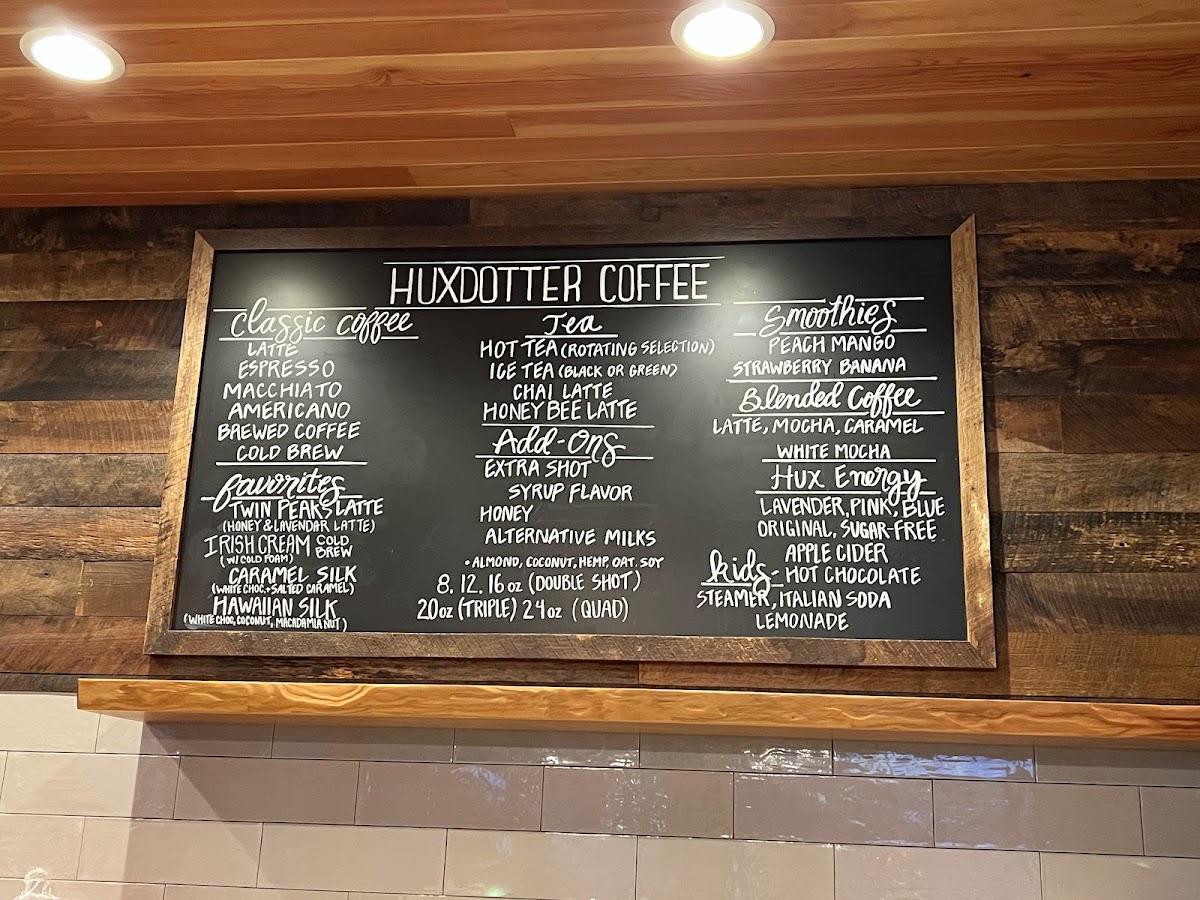 HUXDOTTER COFFEE
Classic Coffee
LATTE
ESPRESSO
MACCHIATO
AMERICANO
BREWED COFFEE
COLD BREW
favorites
TWIN PEAKS LATTE
(HONEY & LAVENDAR LATTE)
IRISH CREAM COLD BREW
(W/ COLD FOAM)
CARAMEL SILK
(WHITE CHOC. + SALTED CARAMEL)
HAWAIIAN SILK
(WHITE CHOC, COCONUT, MACADAMIA NUT)
Tea
HOT TEA (ROTATING SELECTION)
ICE TEA (BLACK OR GREEN)
CHAI LATTE
HONEY BEE LATTE
Add-Ons
EXTRA SHOT
SYRUP FLAVOR
HONEY
ALTERNATIVE MILKS
• ALMOND, COCONUT, HEMP, OAT, SOY
8, 12, 16 oz (DOUBLE SHOT)
20oz (TRIPLE) 24oz (QUAD)
Smoothies
PEACH MANGO
STRAWBERRY BANANA
Blended Coffee
LATTE, MOCHA, CARAMEL
WHITE MOCHA
Hux Energy
LAVENDER, PINK, BLUE
ORIGINAL, SUGAR-FREE
APPLE CIDER
kids - HOT CHOCOLATE
STEAMER, ITALIAN SODA
LEMONADE